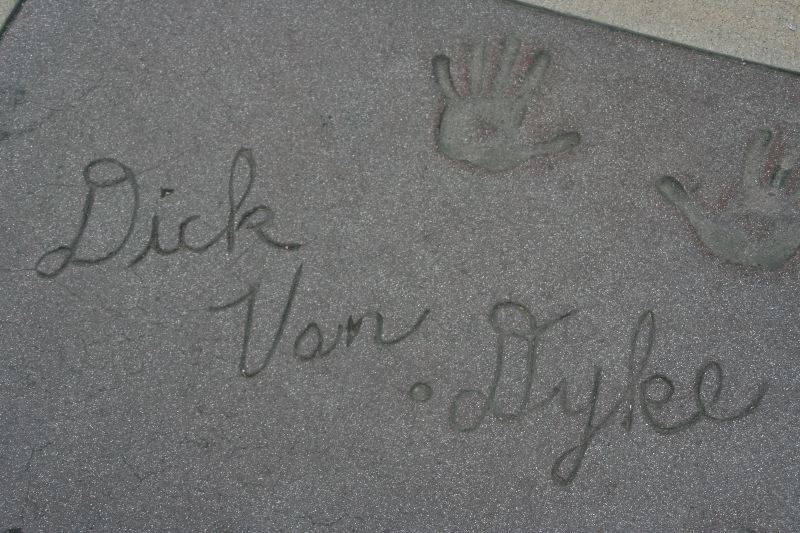 Dick
Van Dyke